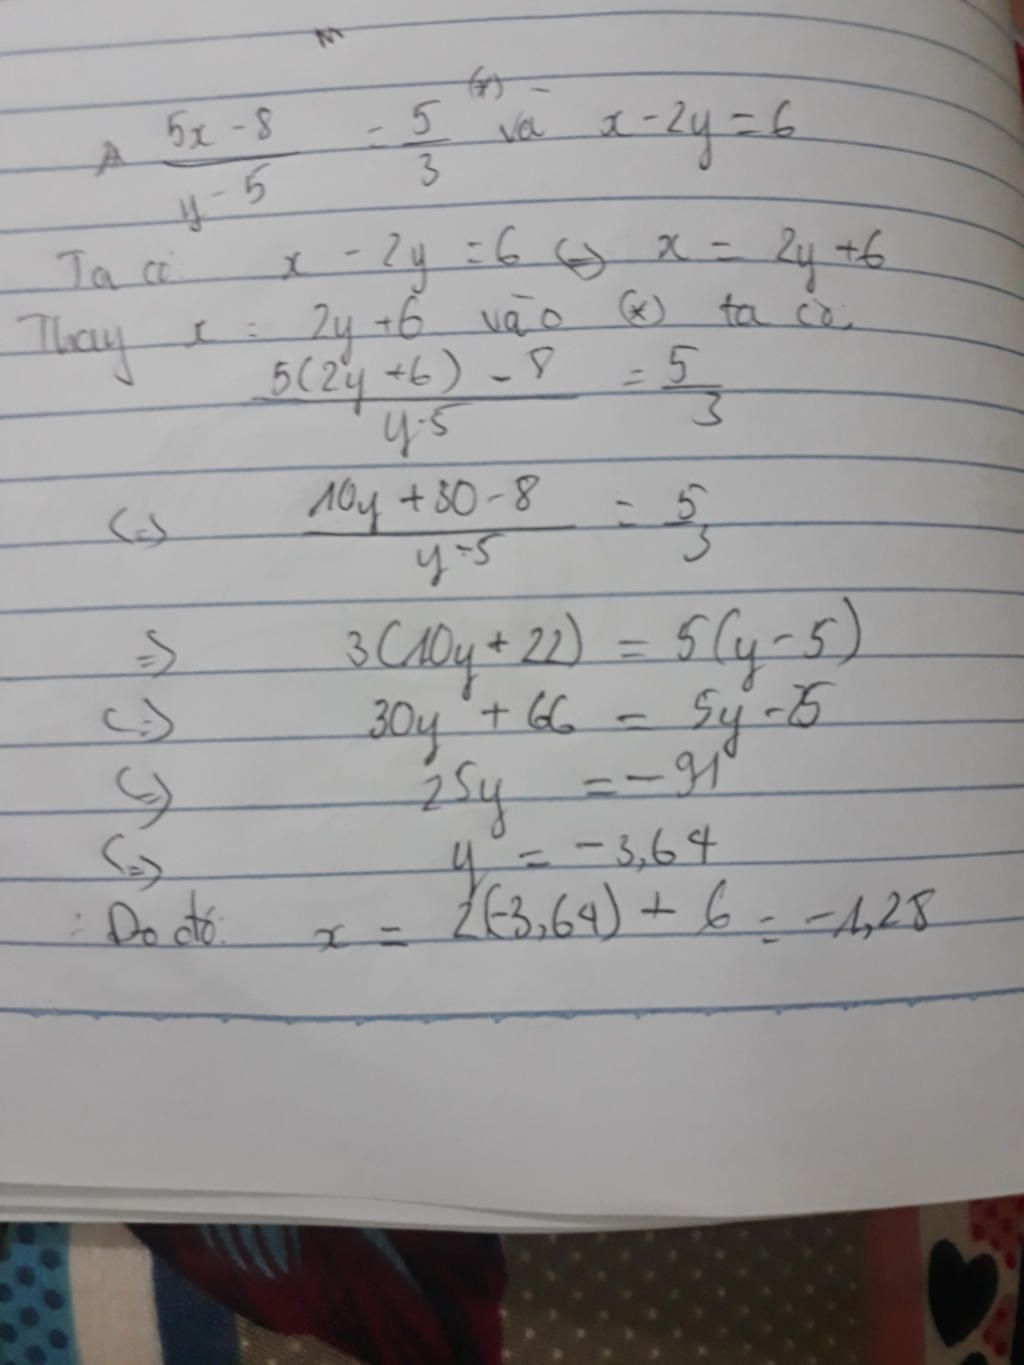 (5x - 8)/(y - 5) = 5/3 (*) và x - 2y = 6
Ta có x - 2y = 6 <=> x = 2y + 6
Thay x = 2y + 6 vào (*) ta có:
(5(2y + 6) - 8)/(y - 5) = 5/3
<=> (10y + 30 - 8)/(y - 5) = 5/3
=> 3(10y + 22) = 5(y - 5)
<=> 30y + 66 = 5y - 25
<=> 25y = -91
<=> y = -3,64
Do đó: x = 2(-3,64) + 6 = -1,28